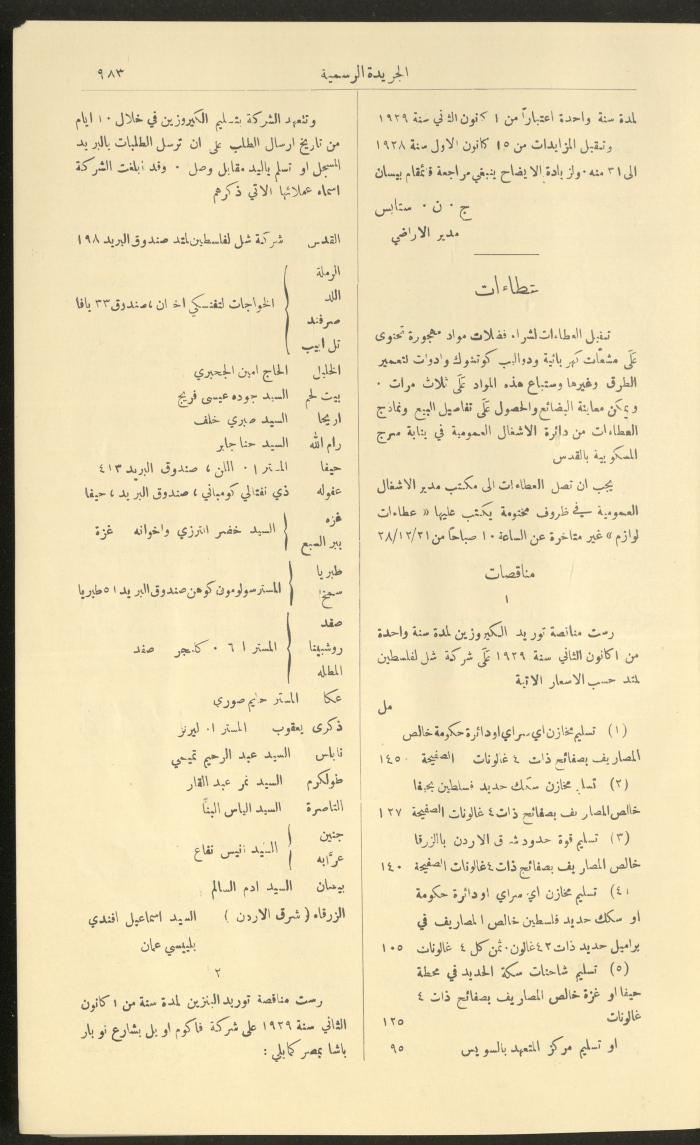 الجريدة الرسمية
٩٨٣
لمدة سنة واحدة اعتباراً من ١ كانون الثاني سنة ١٩٢٩
وتقبل المزايدات من ١٥ كانون الاول سنة ١٩٢٨
الى ٣١ منه ٠ ولزيادة الايضاح ينبغي مراجعة قائمقام بيسان
ج ٠ ن ٠ ستابس
مدير الاراضي
عطاءات
تقبل العطاءات لشراء فضلات مواد مهجورة تحتوى
على مشعّات كهربائية ودواليب كوتشوك وادوات لتعمير
الطرق وغيرها وستباع هذه المواد على ثلاث مرات ٠
ويمكن معاينة البضائع والحصول على تفاصيل البيع ونماذج
العطاءات من دائرة الاشغال العمومية في بناية مسرح
المسكوبية بالقدس
يجب ان تصل العطاءات الى مكتب مدير الاشغال
العمومية في ظروف مختومة يكتب عليها « عطاءات
لوازم » غير متاخرة عن الساعة ١٠ صباحاً من ٢٨/١٢/٣١
مناقصات
١
رست مناقصة توريد الكيروزين لمدة سنة واحدة
من ١ كانون الثاني سنة ١٩٢٩ على شركة شل لفلسطين
لمتد حسب الاسعار الاتية
مل
(١) تسليم مخازن اي سراي او دائرة حكومة خالص
المصاريف بصفائح ذات ٤ غالونات الصفيحة ١٤٥
(٢) تسليم مخازن سكك حديد فلسطين بحيفا
خالص المصاريف بصفائح ذات ٤ غالونات الصفيحة ١٢٧
(٣) تسليم قوة حدود شرق الاردن بالزرقا
خالص المصاريف بصفائح ذات ٤ غالونات الصفيحة ١٤٠
(٤) تسليم مخازن اي سراي او دائرة حكومة
او سكك حديد فلسطين خالص المصاريف في
براميل حديد ذات ٤٢ غالون ٠ ثمن كل ٤ غالونات ١٠٥
(٥) تسليم شاحنات سكة الحديد في محطة
حيفا او غزة خالص المصاريف بصفائح ذات ٤
غالونات ١٢٥
او تسليم مركز المتعهد بالسويس ٩٥
وتتعهد الشركة بتسليم الكيروزين في خلال ١٠ ايام
من تاريخ ارسال الطلب على ان ترسل الطلبات بالبريد
المسجل او تسلم باليد مقابل وصل ٠ وقد ابلغت الشركة
اسماء عملائها الاتي ذكرهم
القدس شركة شل لفلسطين لمتد صندوق البريد ١٩٨
الرملة
اللد
صرفند
تل ابيب
الخواجات لتفنسكي اخوان ، صندوق ٣٣ يافا
الخليل الحاج امين الجحبري
بيت لحم السيد جوده عيسى فريج
اريحا السيد صبري خلف
رام الله السيد حنا جابر
حيفا المستر ا ٠ اللن ، صندوق البريد ٤١٣
عفوله ذي نفتالي كومباني ، صندوق البريد ، حيفا
غزه
بير السبع
السيد خضر الترزي واخوانه غزة
طبريا
سمخ
المستر سولومون كوهن صندوق البريد ٥١ طبريا
صفد
روشبينا
المطله
المستر ا ٠ ٦ كلنجر صفد
عكا المستر حليم صوري
ذكرى يعقوب المستر ا ٠ ليرنز
نابلس السيد عبد الرحيم تميمي
طولكرم السيد نمر عبد القار
الناصرة السيد الياس البنّا
جنين
عرّابه
السيد انيس نفاع
بيسان السيد ادم السالم
الزرقاء ( شرق الاردن ) السيد اسماعيل افندي
بلبيسي عمان
٢
رست مناقصة توريد البنزين لمدة سنة من ١ كانون
الثاني سنة ١٩٢٩ على شركة فاكوم اويل بشارع نوبار
باشا بمصر كما يلي :